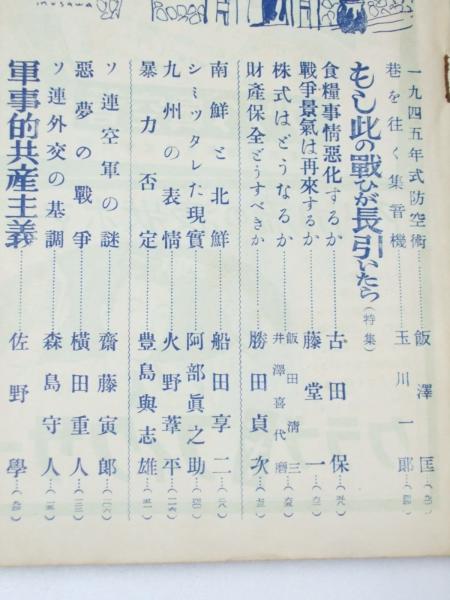 一九四五年式防空術……飯澤匡
巷を往く集音機……玉川一郎
もし此の戰ひが長引いたら（特集）
食糧事情惡化するか……古田保
戰爭景氣は再來するか……藤堂一
株式はどうなるか……飯田清三 井澤喜代磨
財産保全どうすべきか……勝田貞次
南鮮と北鮮……船田享二
シミツタレた現實……阿部眞之助
九州の表情……火野葦平
暴力否定……豊島與志雄
ソ連空軍の謎……齋藤寅郎
惡夢の戰爭……横田重人
ソ連外交の基調……森島守人
軍事的共産主義……佐野學